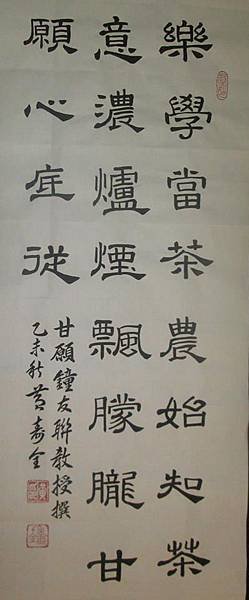 樂學當茶農始知茶
意濃爐煙飄朦朧甘
願心座從
甘願鐘友聯教授撰
乙未秋黃嘉全